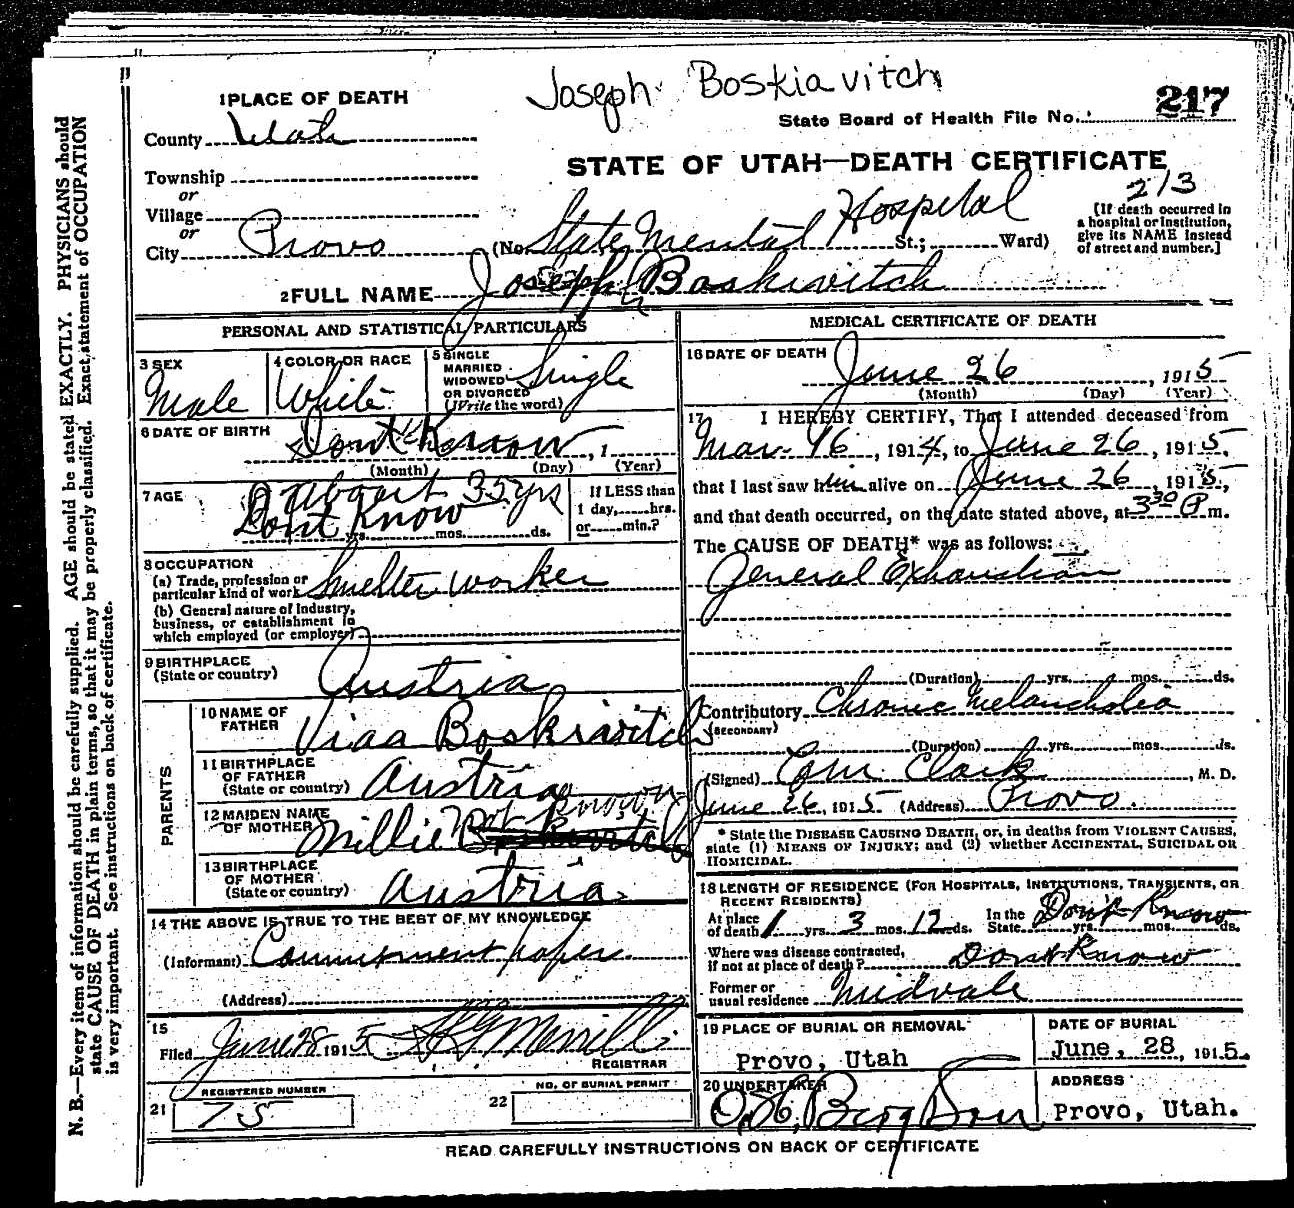 Joseph Boskiavitch
1 PLACE OF DEATH
State Board of Health File No. 217
County Utah
STATE OF UTAH—DEATH CERTIFICATE
213
Township
or
Village
or
City Provo
(No. State Mental Hospital St.; Ward)
[If death occurred in
a hospital or institution,
give its NAME instead
of street and number.]
2 FULL NAME Joseph Boskivitch
PERSONAL AND STATISTICAL PARTICULARS
3 SEX
Male
4 COLOR OR RACE
White
5 SINGLE
MARRIED
WIDOWED
OR DIVORCED
(Write the word)
Single
6 DATE OF BIRTH
Dont Know, 1
(Month) (Day) (Year)
7 AGE
About 35 yrs
Dont Know
yrs. mos. ds.
If LESS than
1 day, hrs.
or min.?
8 OCCUPATION
(a) Trade, profession or
particular kind of work Smelter worker
(b) General nature of Industry,
business, or establishment in
which employed (or employer)
9 BIRTHPLACE
(State or country)
Austria
PARENTS
10 NAME OF
FATHER
Boskiavitch
11 BIRTHPLACE
OF FATHER
(State or country)
Austria
12 MAIDEN NAME
OF MOTHER
Millie not known
13 BIRTHPLACE
OF MOTHER
(State or country)
Austria
14 THE ABOVE IS TRUE TO THE BEST OF MY KNOWLEDGE
(Informant) Commitment papers
(Address)
15
Filed June 28 1915 Merrill
REGISTRAR
REGISTERED NUMBER
21 75
NO. OF BURIAL PERMIT
22
MEDICAL CERTIFICATE OF DEATH
16 DATE OF DEATH
June 26, 1915
(Month) (Day) (Year)
17 I HEREBY CERTIFY, That I attended deceased from
Mar. 16, 1914, to June 26, 1915,
that I last saw him alive on June 26, 1915,
and that death occurred, on the date stated above, at 3 30 P m.
The CAUSE OF DEATH* was as follows:
General Exhaustion
(Duration) yrs. mos. ds.
Contributory Chronic Melancholia
(SECONDARY)
(Duration) yrs. mos. ds.
(Signed) Clark, M. D.
June 26, 1915 (Address) Provo.
* State the DISEASE CAUSING DEATH, or, in deaths from VIOLENT CAUSES,
state (1) MEANS OF INJURY; and (2) whether ACCIDENTAL, SUICIDAL OR
HOMICIDAL.
18 LENGTH OF RESIDENCE (FOR HOSPITALS, INSTITUTIONS, TRANSIENTS, OR
RECENT RESIDENTS)
At place
of death 1 yrs. 3 mos. 12 ds.
In the
State Don't Know yrs. mos. ds.
Where was disease contracted,
if not at place of death? Dont Know
Former or
usual residence Midvale
19 PLACE OF BURIAL OR REMOVAL
Provo, Utah
DATE OF BURIAL
June, 28, 1915.
20 UNDERTAKER
Berg & Son
ADDRESS
Provo, Utah.
READ CAREFULLY INSTRUCTIONS ON BACK OF CERTIFICATE
N. B.—Every item of information should be carefully supplied. AGE should be stated EXACTLY. PHYSICIANS should
state CAUSE OF DEATH in plain terms, so that it may be properly classified. Exact statement of OCCUPATION
is very important. See instructions on back of certificate.